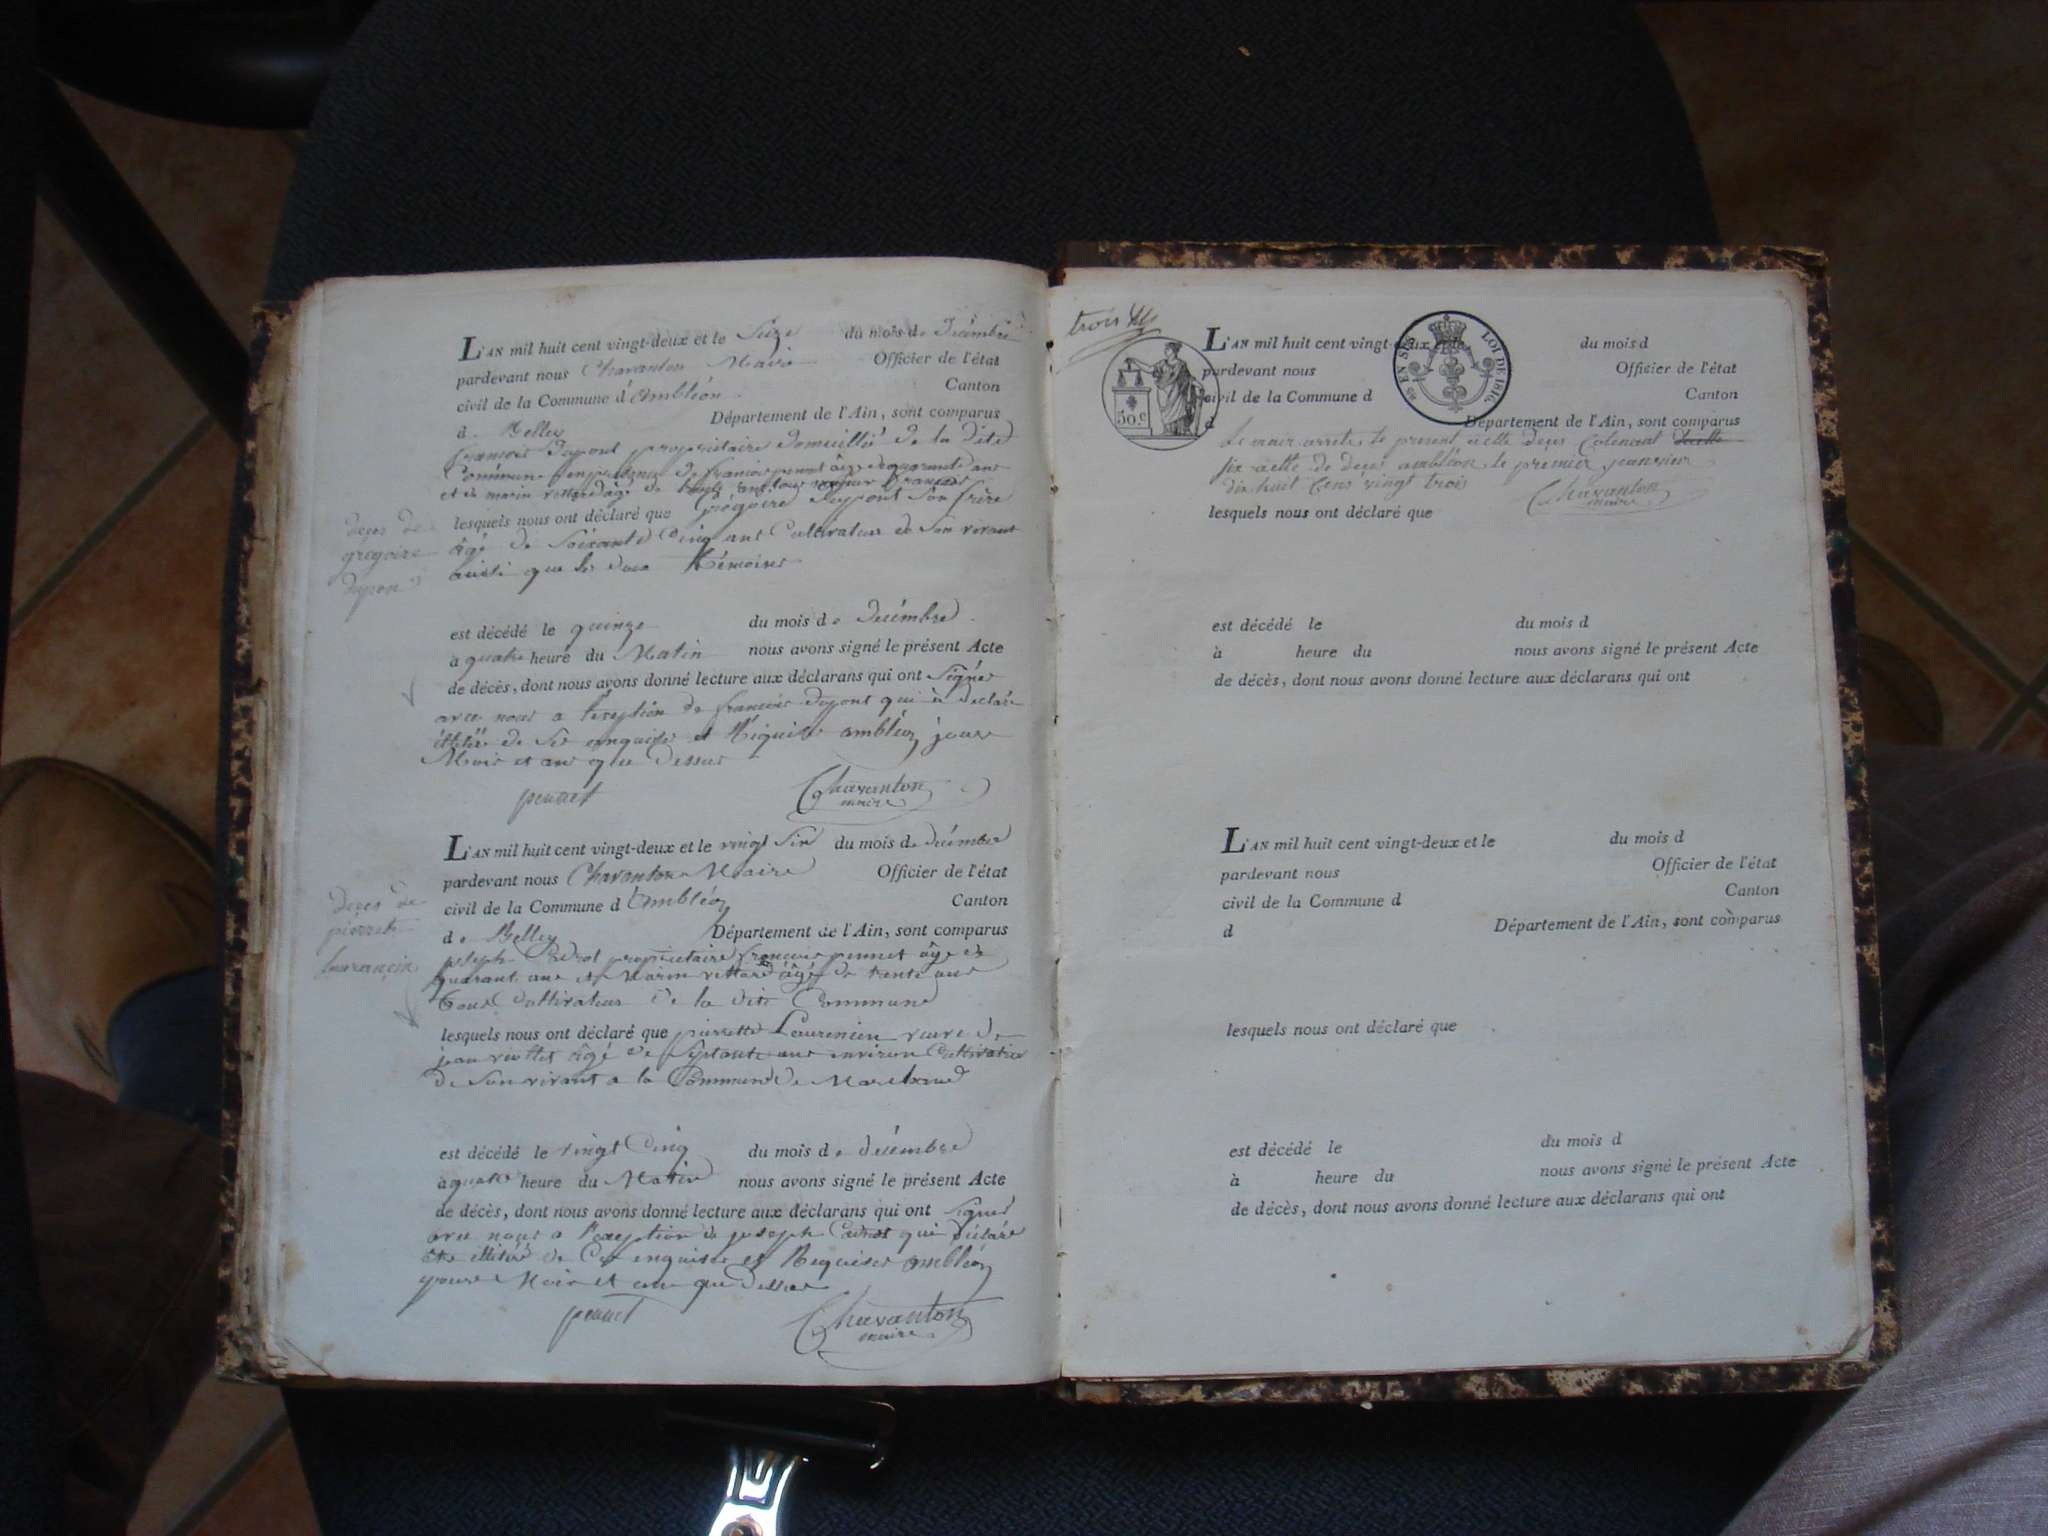 L'AN mil huit cent vingt-deux et le Seize du mois de Décembre
pardevant nous Chavanton Maire Officier de l'état
civil de la Commune d'Ambléon Canton
de Belley Département de l'Ain, sont comparus
françois dupont propriétaire domicillié de la dite
Commune en présence de françois pennet âgé de quarante ans
et de marin vettard âgé de trente ans tous
lesquels nous ont déclaré que Grégoire dupont Son frère
âgé de Soixante Cinq ans Cultivateur de Son vivant
aussi que les deux Témoins
decès de
grégoire
dupon
est décédé le quinze du mois de Décembre
à quatre heure du Matin nous avons signé le présent Acte
de décès, dont nous avons donné lecture aux déclarans qui ont Signés
avec nous a l'exeption de françois dupont qui à déclaré
de Ce enquis et Réquis ambléon jour
Mois et an que Dessus
pennet Chavanton
maire
L'AN mil huit cent vingt-deux et le vingt Six du mois de décembre
pardevant nous Chavanton Maire Officier de l'état
civil de la Commune d'Ambléon Canton
de Belley Département de l'Ain, sont comparus
decès de
pierrette
joseph propriétaire françois pennet âgé de
quarante ans et Marin vettard âgé de trente ans
tous Cultivateurs de la dite Commune
lesquels nous ont déclaré que pierrette Laurencin veuve de
jean âgé de Septante ans environ Cultivatrice
de Son vivant a la Commune de
est décédé le vingt Cinq du mois de décembre
à quatre heure du Matin nous avons signé le présent Acte
de décès, dont nous avons donné lecture aux déclarans qui ont Signés
avec nous a l'exeption de joseph qui déclaré
être de Ce enquis et Requis ambléon
jour Mois et an que dessus
pennet Chavanton
maire
trois
50 c
EN SUS LOI DE 1816
L'AN mil huit cent vingt-deux et le du mois d
pardevant nous Officier de l'état
civil de la Commune d Canton
d Département de l'Ain, sont comparus
Le maire arrete le present decès Contenant
six acte de decès ambléon le premier janvier
dix huit Cens vingt trois Chavanton
maire
lesquels nous ont déclaré que
est décédé le du mois d
à heure du nous avons signé le présent Acte
de décès, dont nous avons donné lecture aux déclarans qui ont
L'AN mil huit cent vingt-deux et le du mois d
pardevant nous Officier de l'état
civil de la Commune d Canton
d Département de l'Ain, sont comparus
lesquels nous ont déclaré que
est décédé le du mois d
à heure du nous avons signé le présent Acte
de décès, dont nous avons donné lecture aux déclarans qui ont